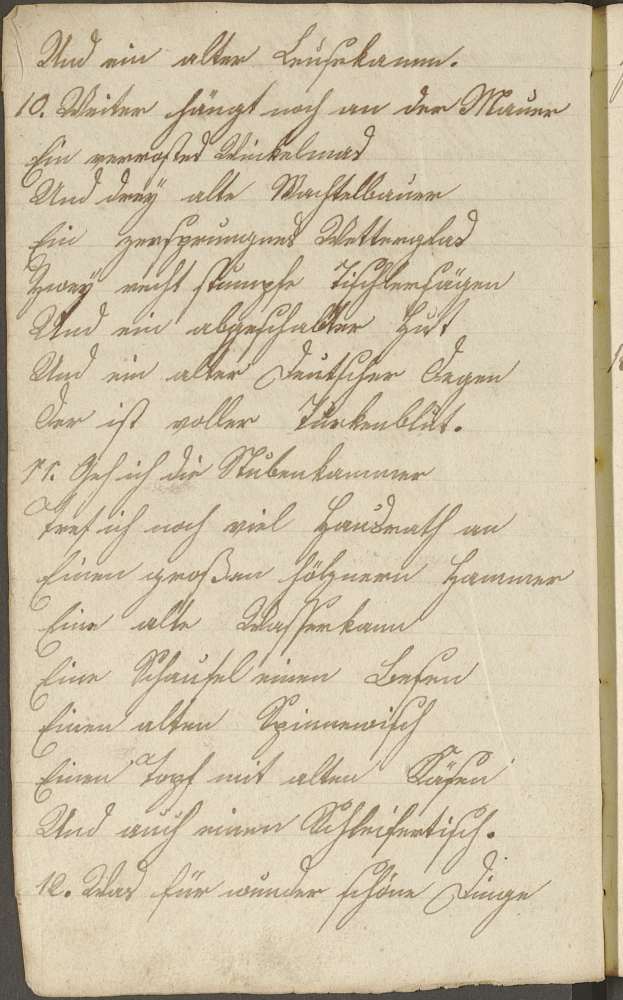 Und ein alter Leusekamm.
10. Weiter hängt noch an der Mauer
Ein verrosted Winkelmas
Und drey alte Wachtelbauer
Ein zersprungnes Wetterglas
Zwey recht stumpfe Tischlersägen
Und ein abgeschabter Hut
Und ein alter Deutscher Degen
Der ist voller Türkenblut.
11. Geh ich die Stubenkammer
Tref ich noch viel Hausrath an
Einen großen hölznern Hammer
Eine alte Wasserkann
Eine Schaufel einen Besen
Einen alten Spinnewisch
Einen Topf mit alten Käsen
Und auch einen Schleifertisch.
12. Was für wunder schöne Dinge